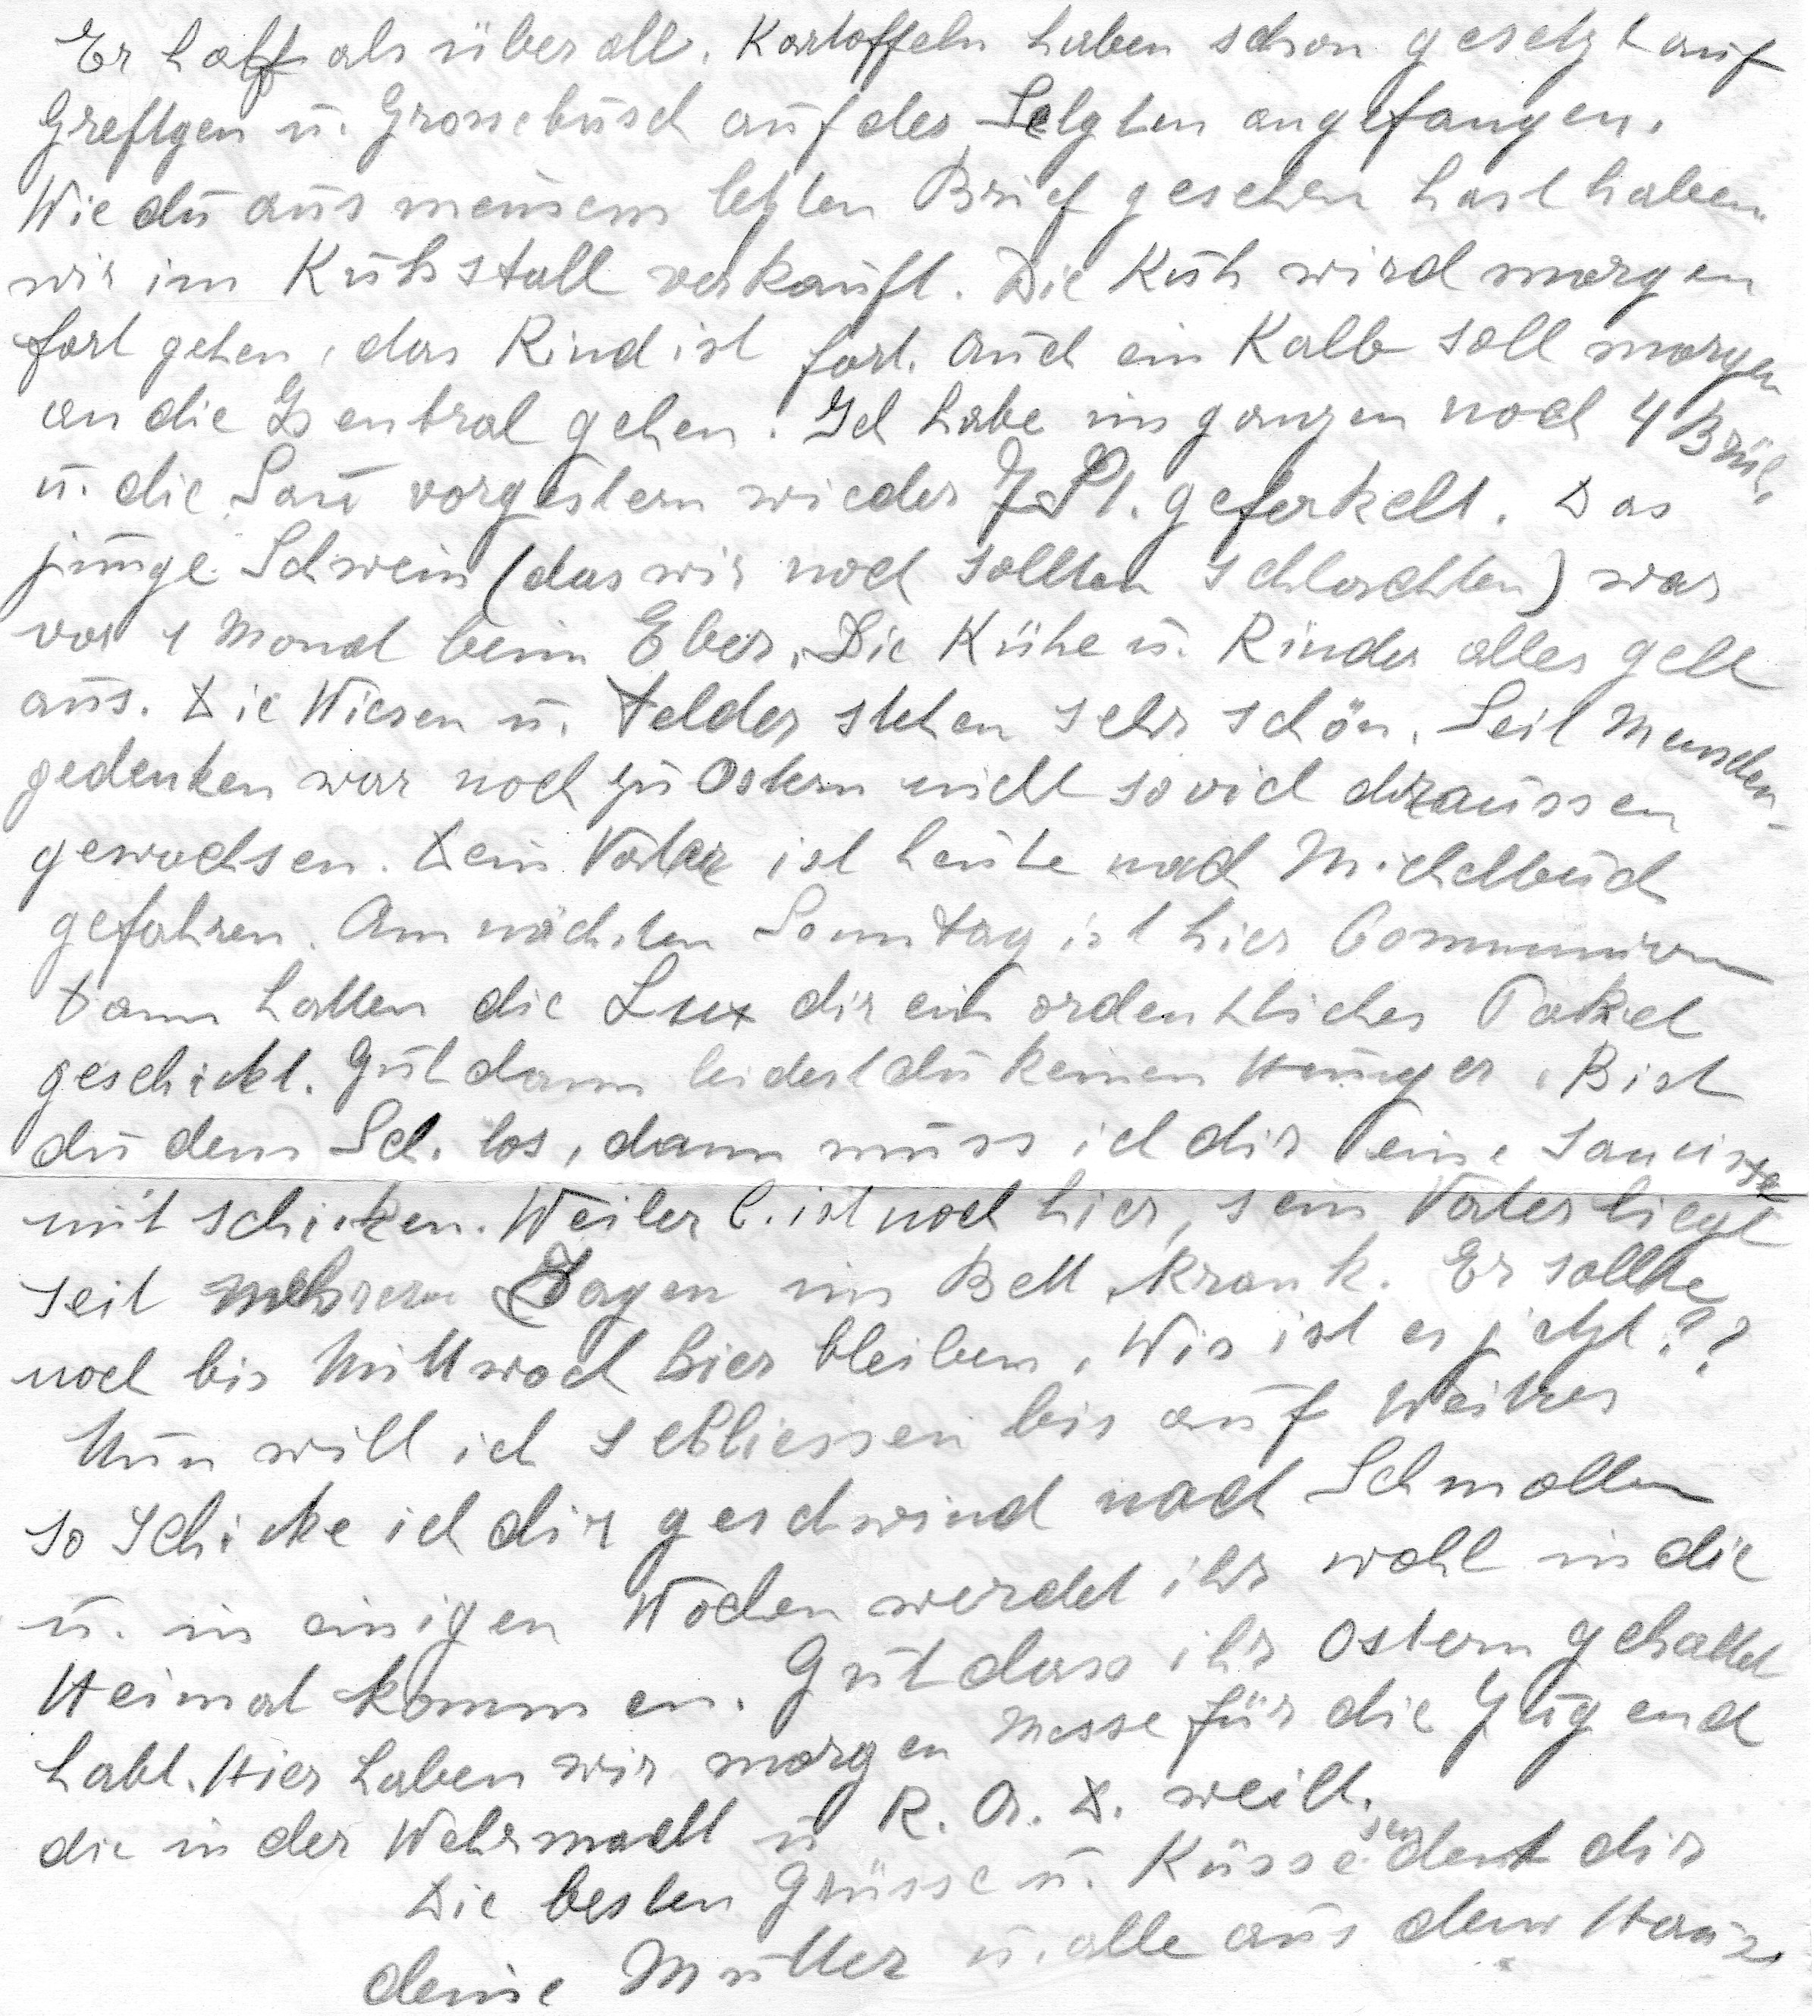 Er hafft als überall. Kartoffeln haben schon gesetzt auf
Greftgen u. Grossebusch auf der Selgten angefangen.
Wie du aus meinem letzten Brief gesehen hast haben
wir im Kuhstall verkauft. Die Kuh wird morgen
fort gehen, das Rind ist fort. auch ein Kalb soll morgen
an die Zentral gehen. Ich habe im ganzen noch 4 Brüh,
u. die Sau vorgestern wieder 7 St. geferkelt. Das
junge Schwein (das wir noch sollten schlachten) war
vor 1 Monat beim Eber. Die Kühe u. Rinder alles geht
aus. Die Wiesen u. Felder stehen sehr schön. Seit Menschen-
gedenken war noch zu Ostern nicht soviel draussen
gewachsen. Dein Vater ist heute nach Michelbuch
gefahren. Am nächsten Sonntag ist hier Communion
Dann hatten die Lux dir ein ordentliches Paket
geschickt. Gut dann leidest du keinen Hunger. Bist
du dem Sch. los, dann muss ich dir eine
mit schicken. Weiler C. ist noch hier, sein Vater liegt
seit mehreren Tagen im Bett krank. Er sollte
noch bis Mittwoch hier bleiben. Wie ist es jetzt??
Nun will ich schliessen bis auf Weiter
so schicke ich dir geschwind nach Schmollen
u. in einigen Wochen werdet ihr wohl in die
Heimat kommen. Gut dass ihr Ostern gehattet
habt. Hier haben wir morgen Messe für die Jugend
die in der Wehrmacht u R. A. D. weilt.
Die besten Grüsse u. Küsse sendent dir
deine Mutter u. alle aus dem Haus.